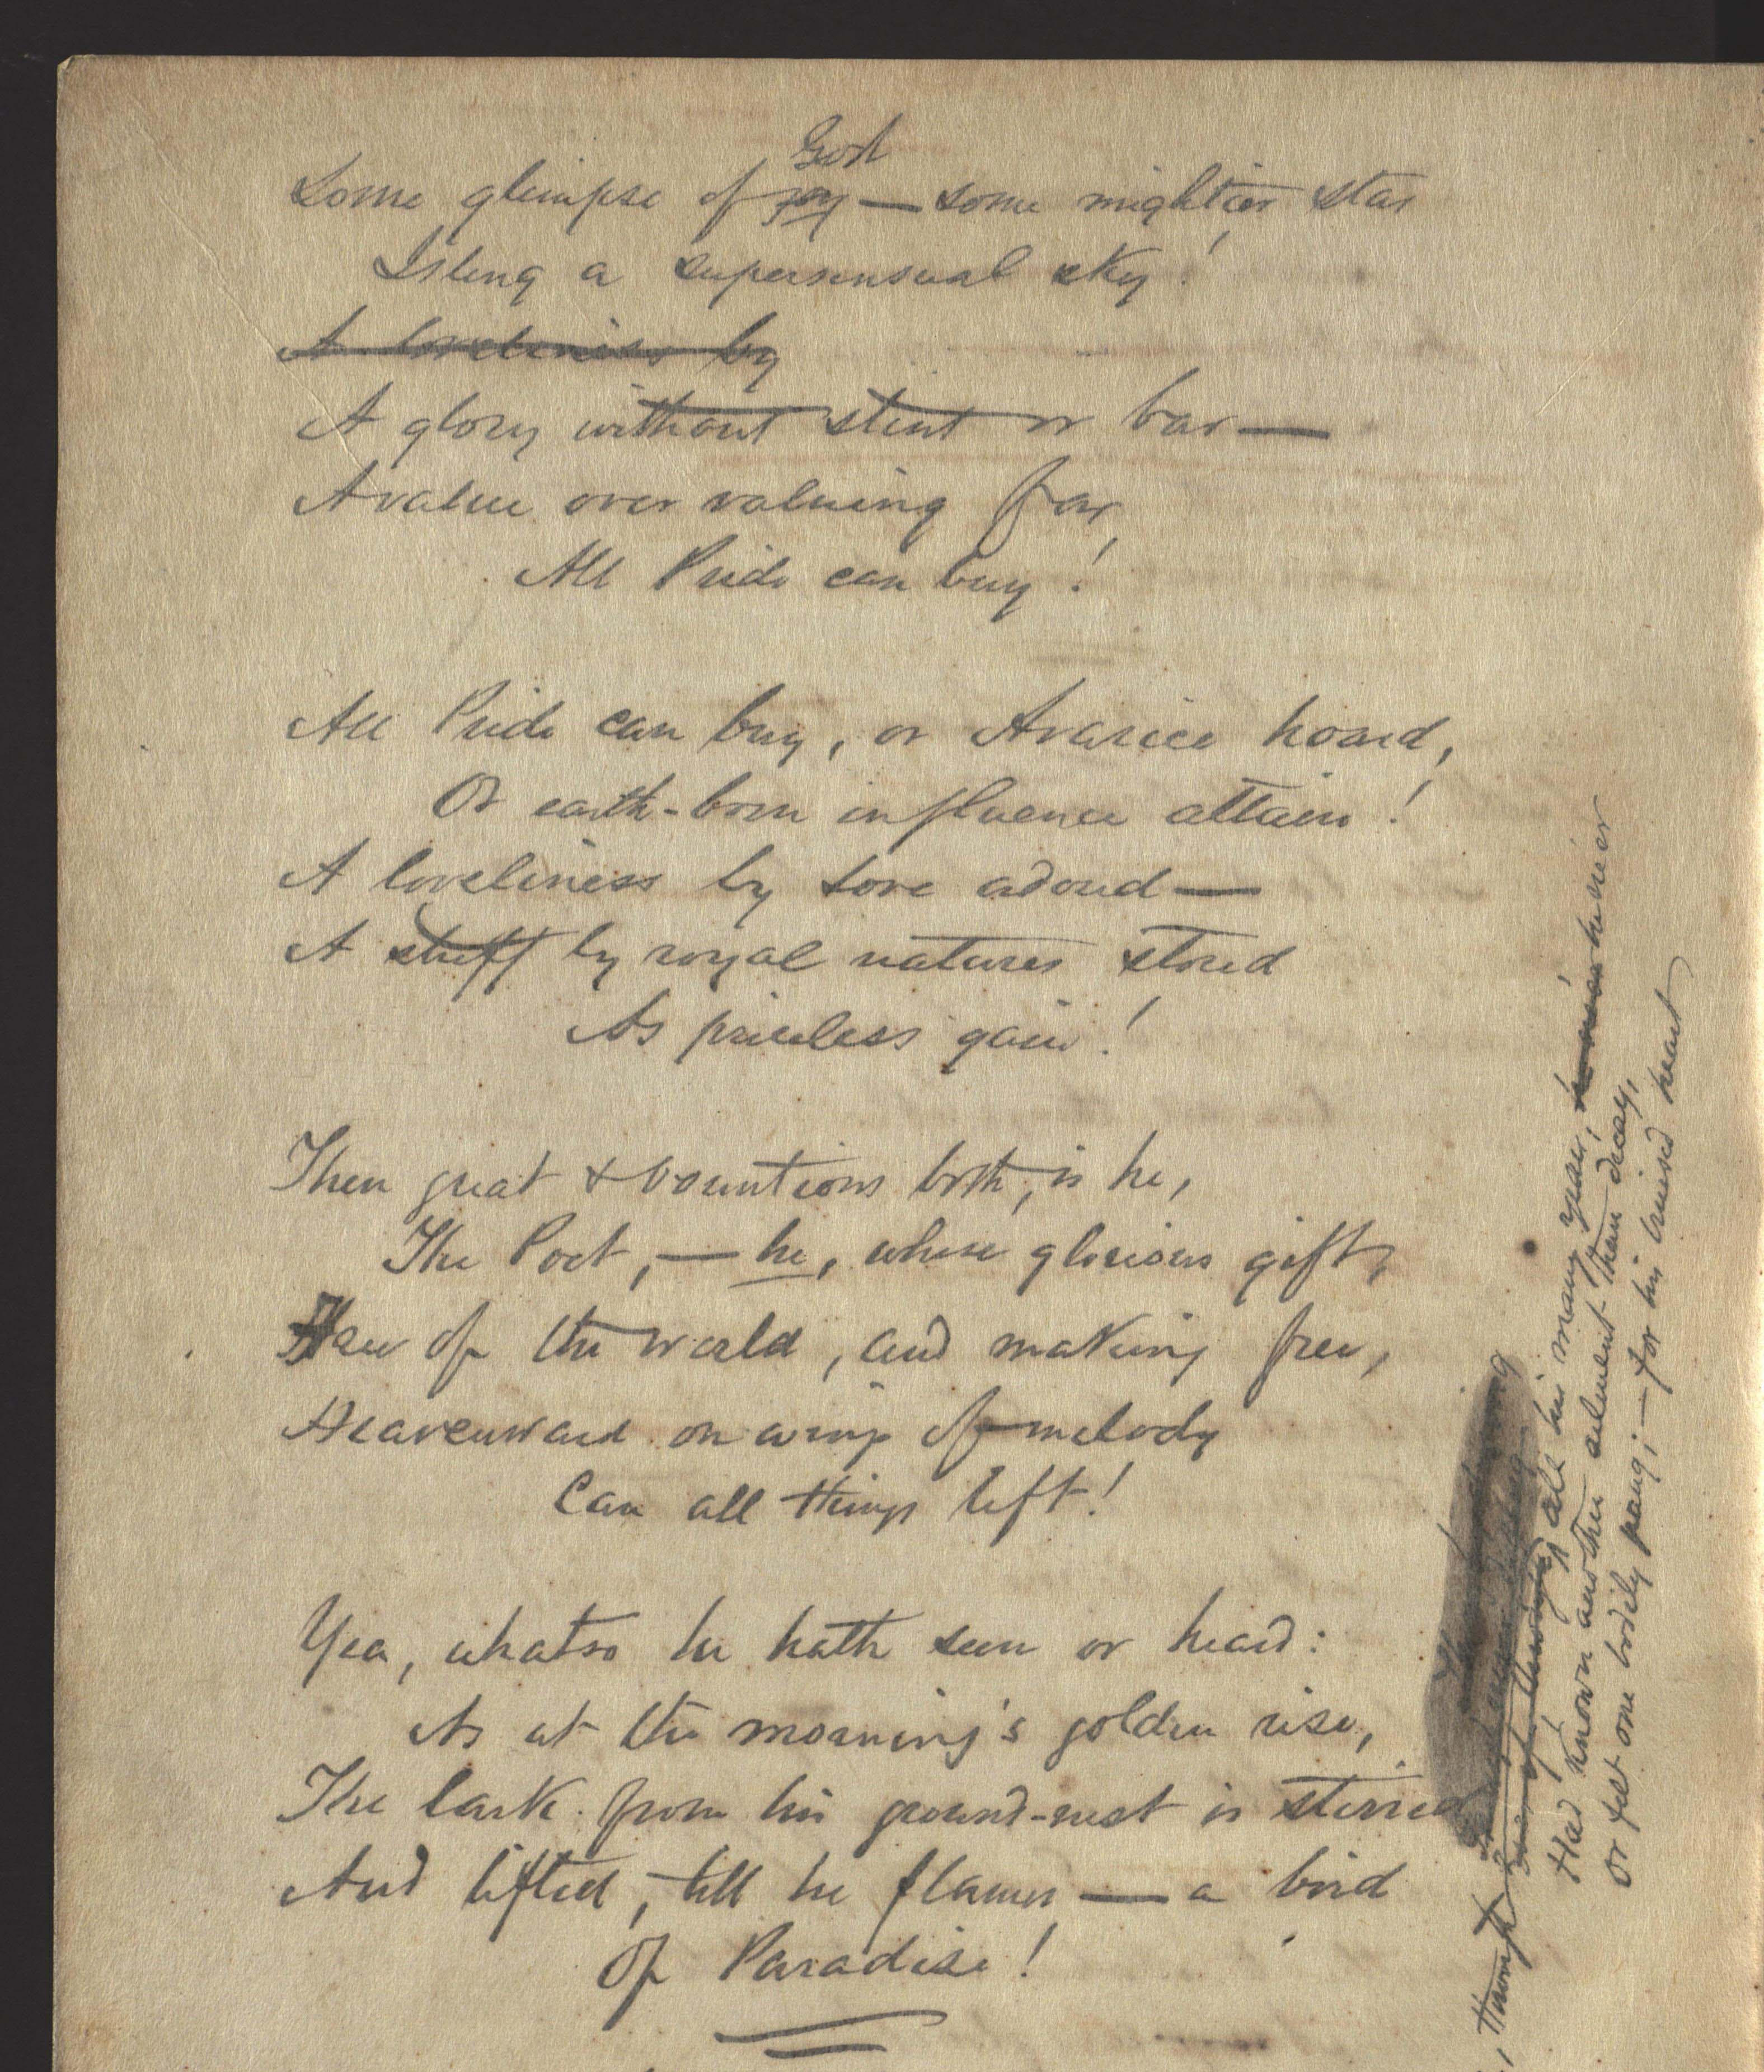 God
Some glimpse of joy — some mightier star
Isling a supersensual sky!
A loveliness by
A glory without stint or bar —
A value over valuing far,
All Pride can buy!
All Pride can buy, or Avarice hoard,
Or earth-born influence attain!
A loveliness by Love adored —
A stuff by royal natures stored
As priceless gain!
Then great & bounteous both, is he,
The Poet, — he, whose glorious gift,
Free of the world, and making free,
Heavenward on wings of melody
Can all things lift!
Yea, whatso he hath seen or heard:
As at the morning's golden rise,
The lark from his ground-nest is stirred
And lifted, till he flames — a bird
Of Paradise!
all his many years, he never
Had known another ailment than decay,
Or felt one bodily pang; — for his bruised heart